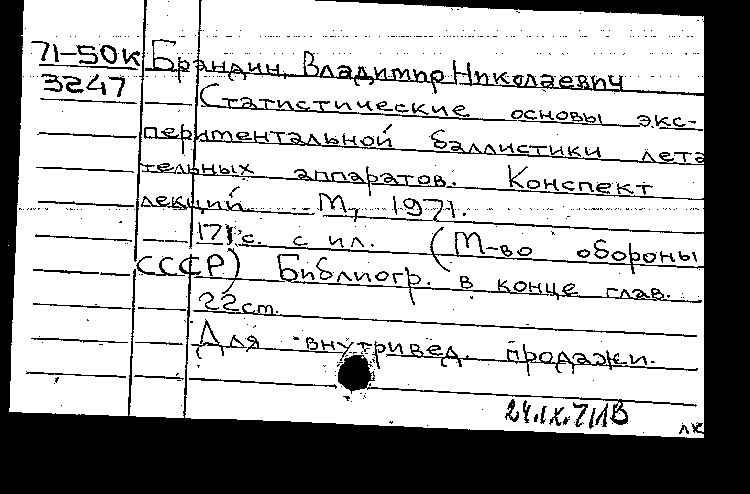 71-50к Брандин, Владимир Николаевич
3247
Статистические основы экс-
периментальной баллистики лета
тельных аппаратов. Конспект
лекций. М, 1971.
171 с. с ил. (М-во обороны
СССР) Библиогр. в конце глав.
22 ст.
Для внутривед. продажи.
24.IX.71
лк